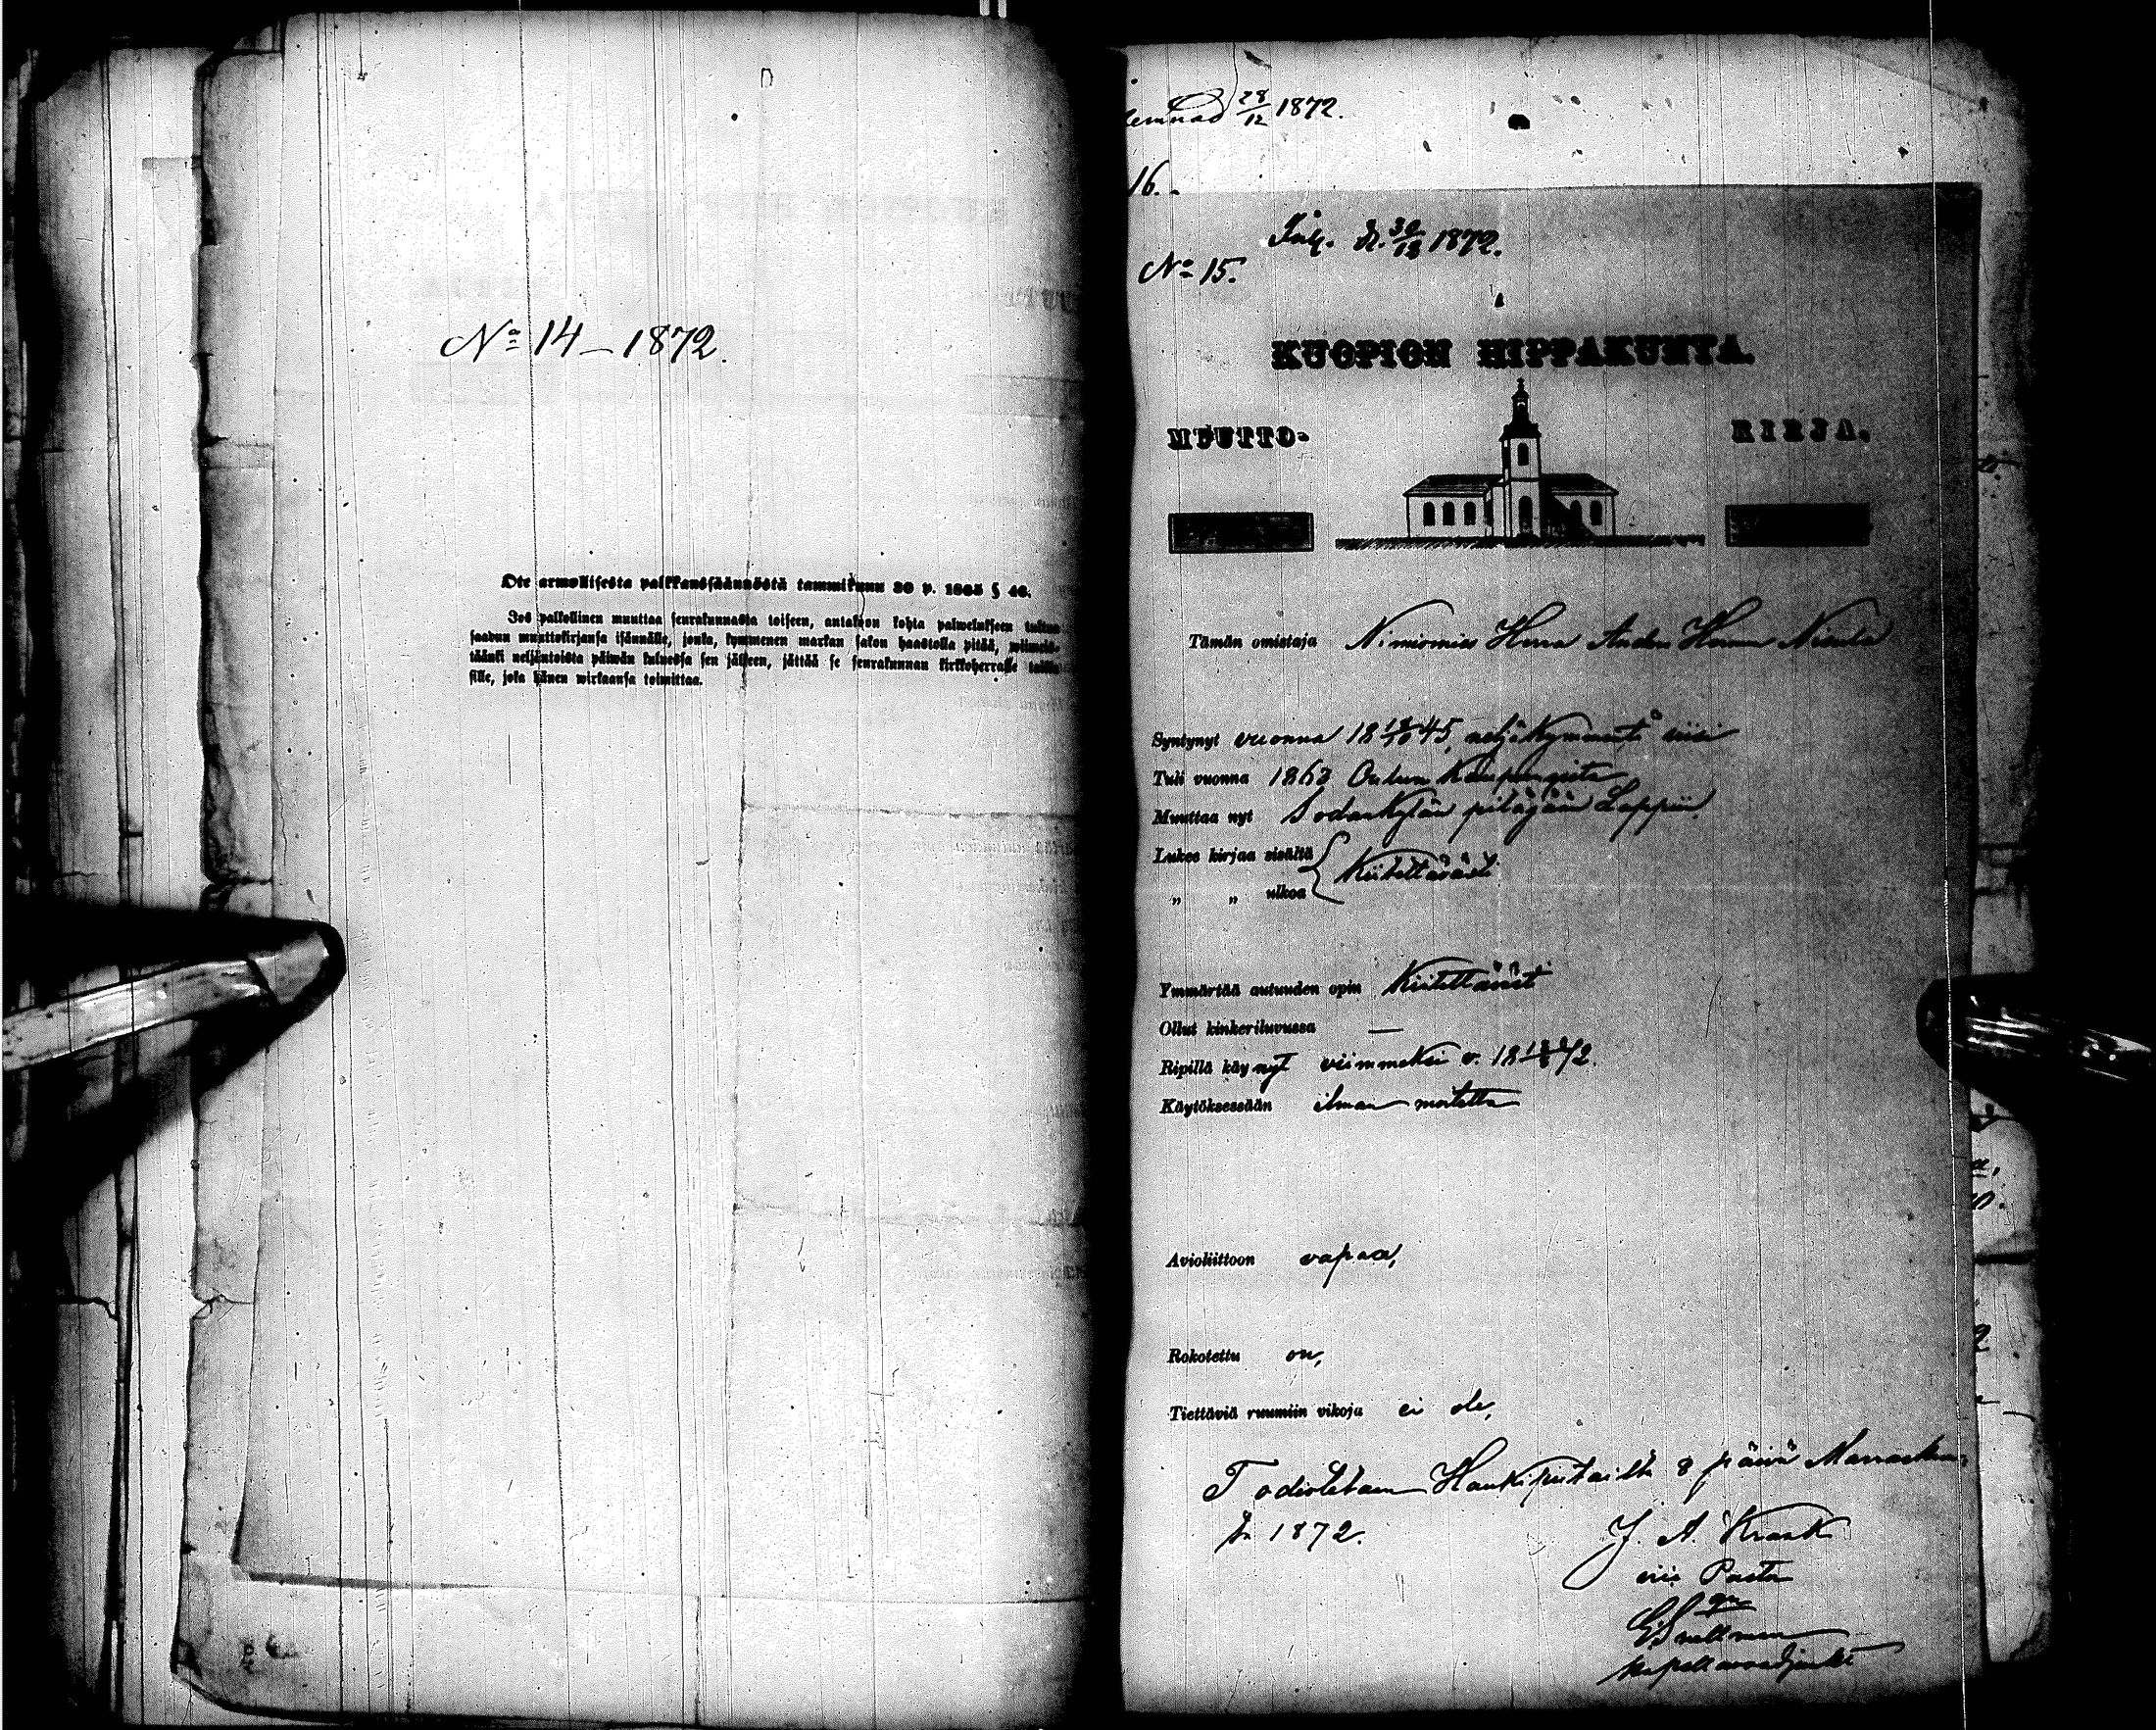 No 14 – 1872.
Ote armollisesta palkkaussäännöstä tammikuun 30 p. 1865 § 46.
Jos palkollinen muuttaa seurakunnasta toiseen, antakoon kohta palwelukseen tultua
saadun muuttokirjansa isännälle, jonka, kymmenen markan sakon haastolla pitää, wiimeis-
täänki neljäntoista päiwän kuluessa sen jälkeen, jättää se seurakunnan kirkkoherralle taikka
sille, joka hänen wirkaansa toimittaa.
28/12 1872.
16.
30/12 1872.
No 15.
KUOPION HIPPAKUNTA.
MUUTTO- KIRJA.
Tämän omistaja Nimismies Herra Herman
Syntynyt vuonna 18 45, neljäkymmentä viisi
Tuli vuonna 1863 Oulun Kaupungista
Muuttaa nyt Sodankylän pitäjään Lappiin.
Lukee kirjaa sisältä
Kiitettävästi
„ „ ulkoa
Ymmärtää autuuden opin Kiitettävästi
Ollut kinkeriluvussa —
Ripillä käynyt viimmeksi v. 18 72.
Käytöksessään ilman moitetta
Avioliittoon vapaa,
Rokotettu on,
Tiettäviä ruumiin vikoja ei ole,
Todistetaan Haukiputailta 8 päivä Marrask.
1872.
J. A.
Snellman